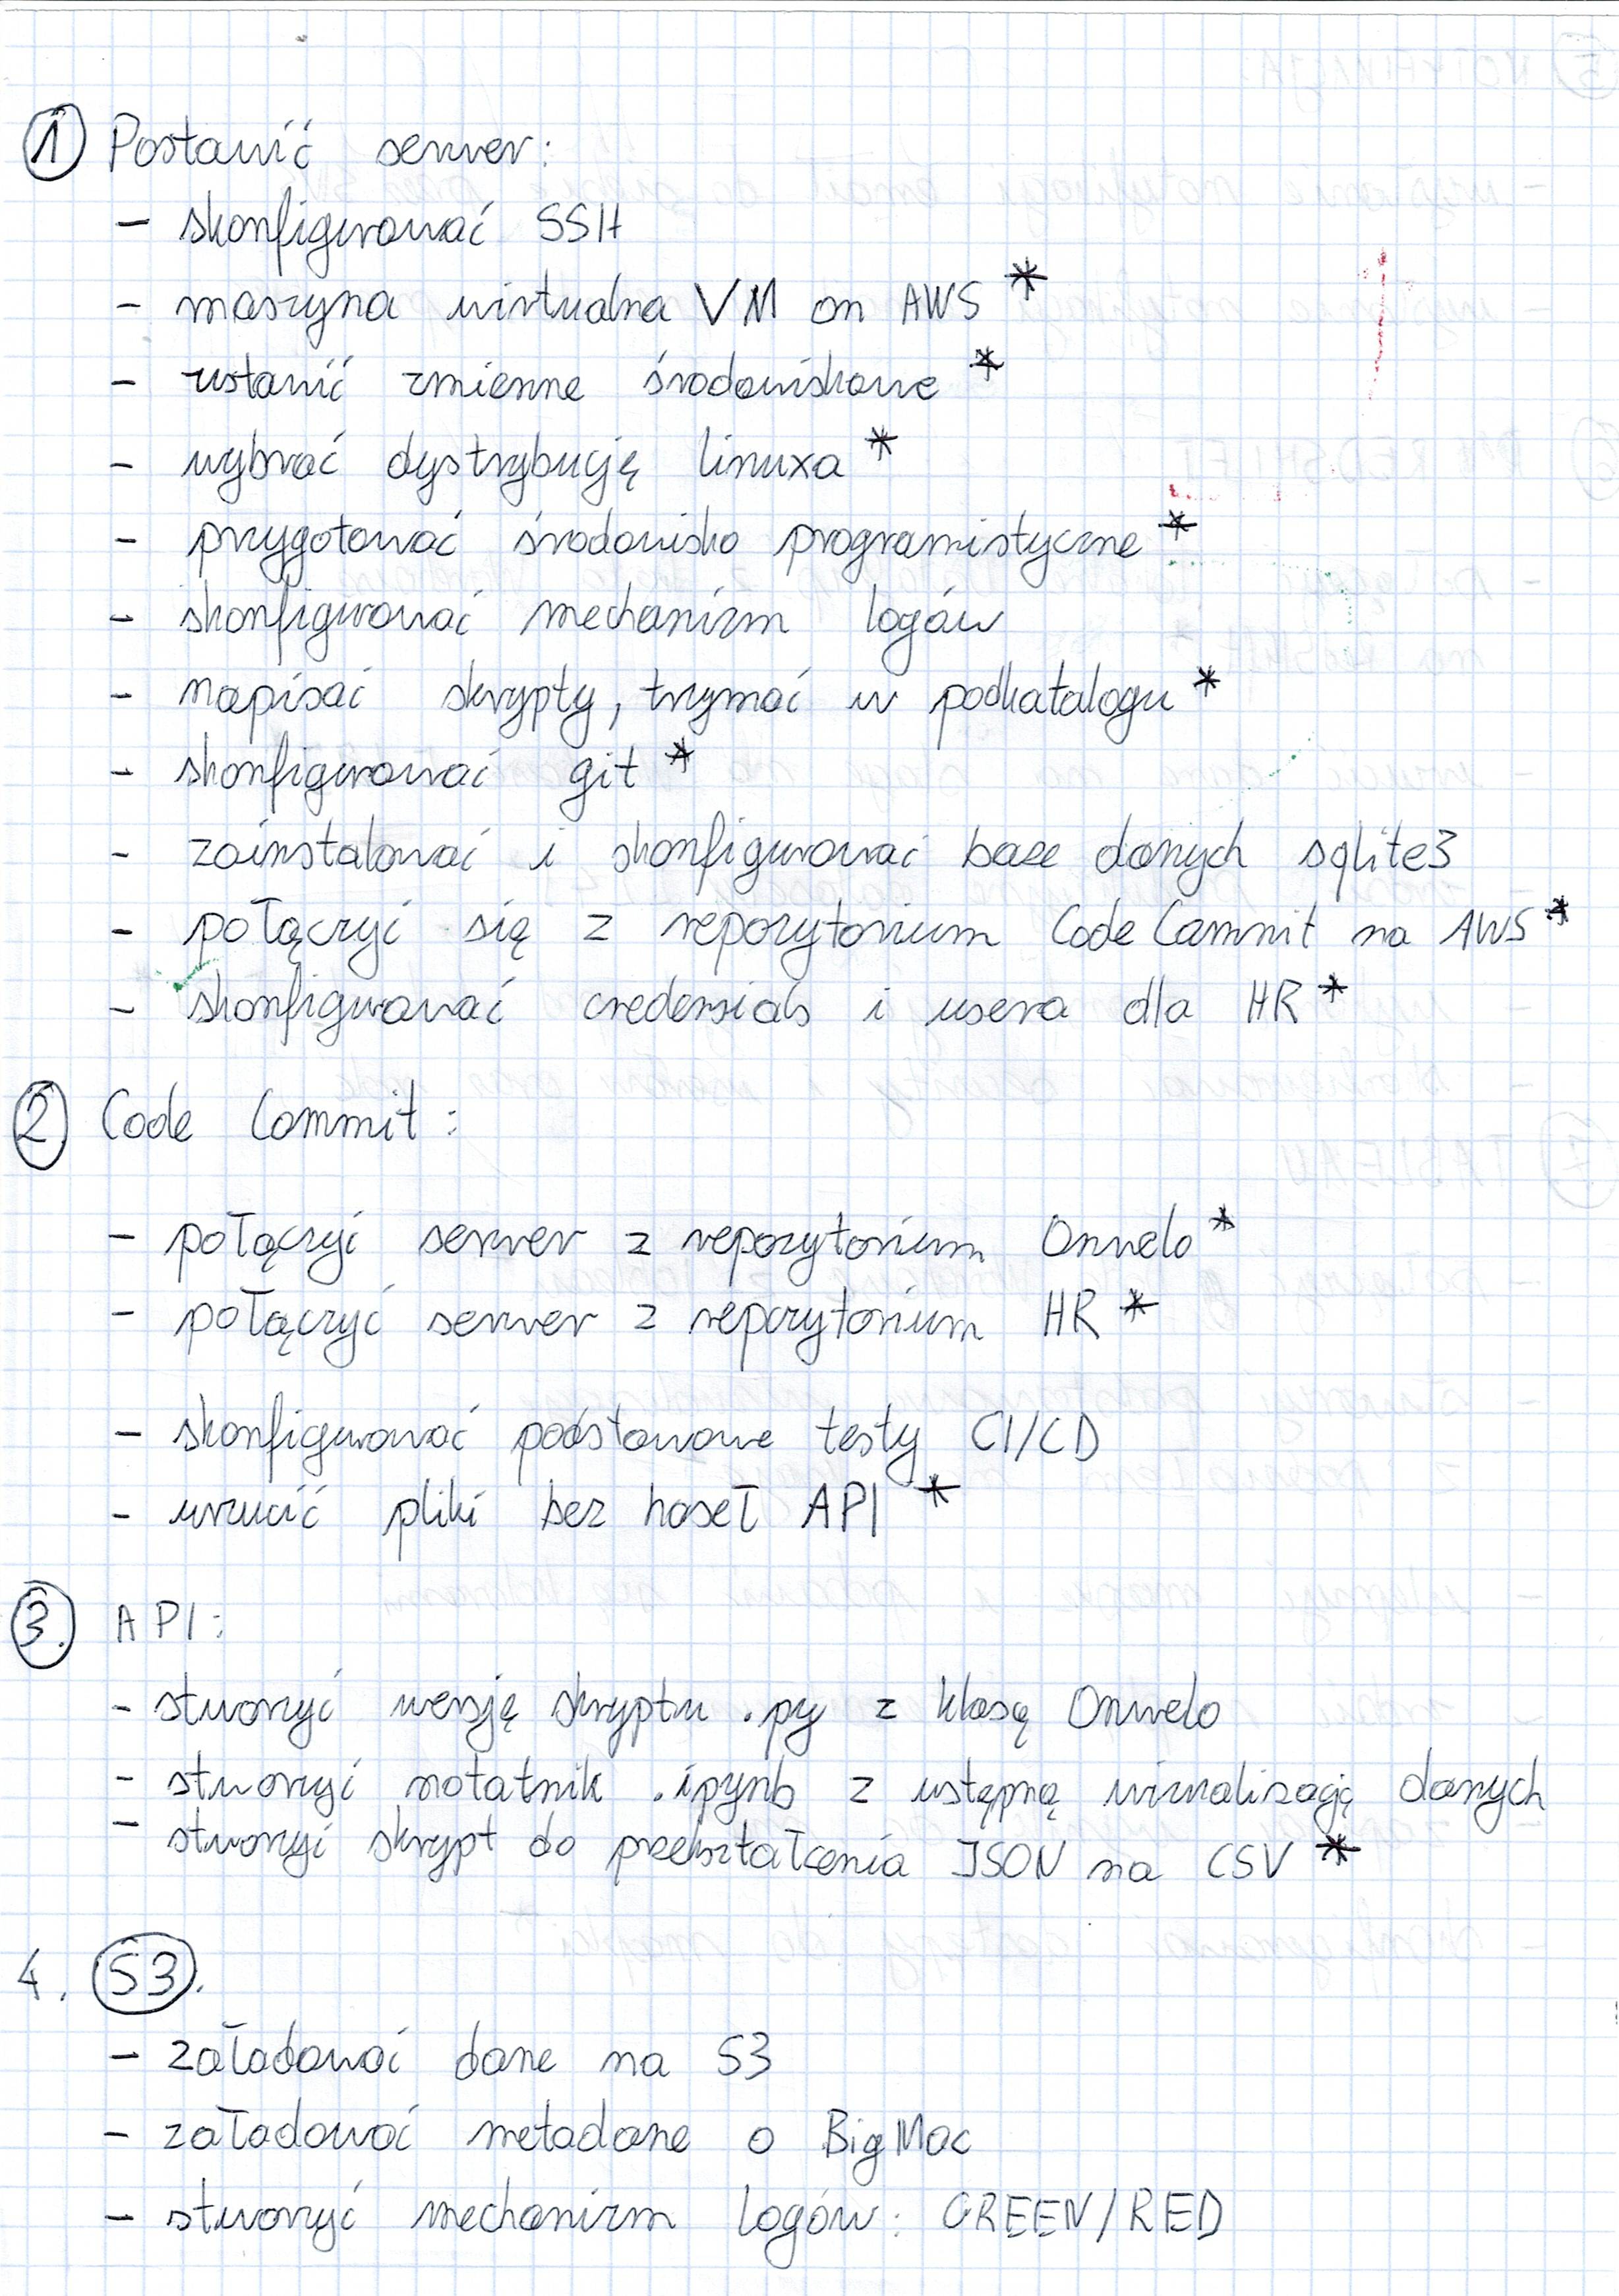 1 Postawić serwer:
- skonfigurować SSH
- maszyna wirtualna VM on AWS *
- ustawić zmienne środowiskowe *
- wybrać dystrybucję linuxa *
- przygotować środowisko programistyczne *
- skonfigurować mechanizm logów
- napisać skrypty, trzymać w podkatalogu *
- skonfigurować git *
- zainstalować i skonfigurować baze danych sqlite3
- połączyć się z repozytorium Code Commit na AWS *
- skonfigurować credensials i usera dla HR *
2 Code Commit:
- połączyć serwer z repozytorium Onwelo *
- połączyć serwer z repozytorium HR *
- skonfigurować podstawowe testy CI/CD
- wrzucić pliki bez haseł API *
3. API:
- stworzyć wersję skryptu .py z klasą Onwelo
- stworzyć notatnik .ipynb z wstępną wizualizacją danych
- stworzyć skrypt do przekształcenia JSON na CSV *
4. S3.
- załadować dane na S3
- załadować metadane o BigMac
- stworzyć mechanizm logów: GREEN/RED